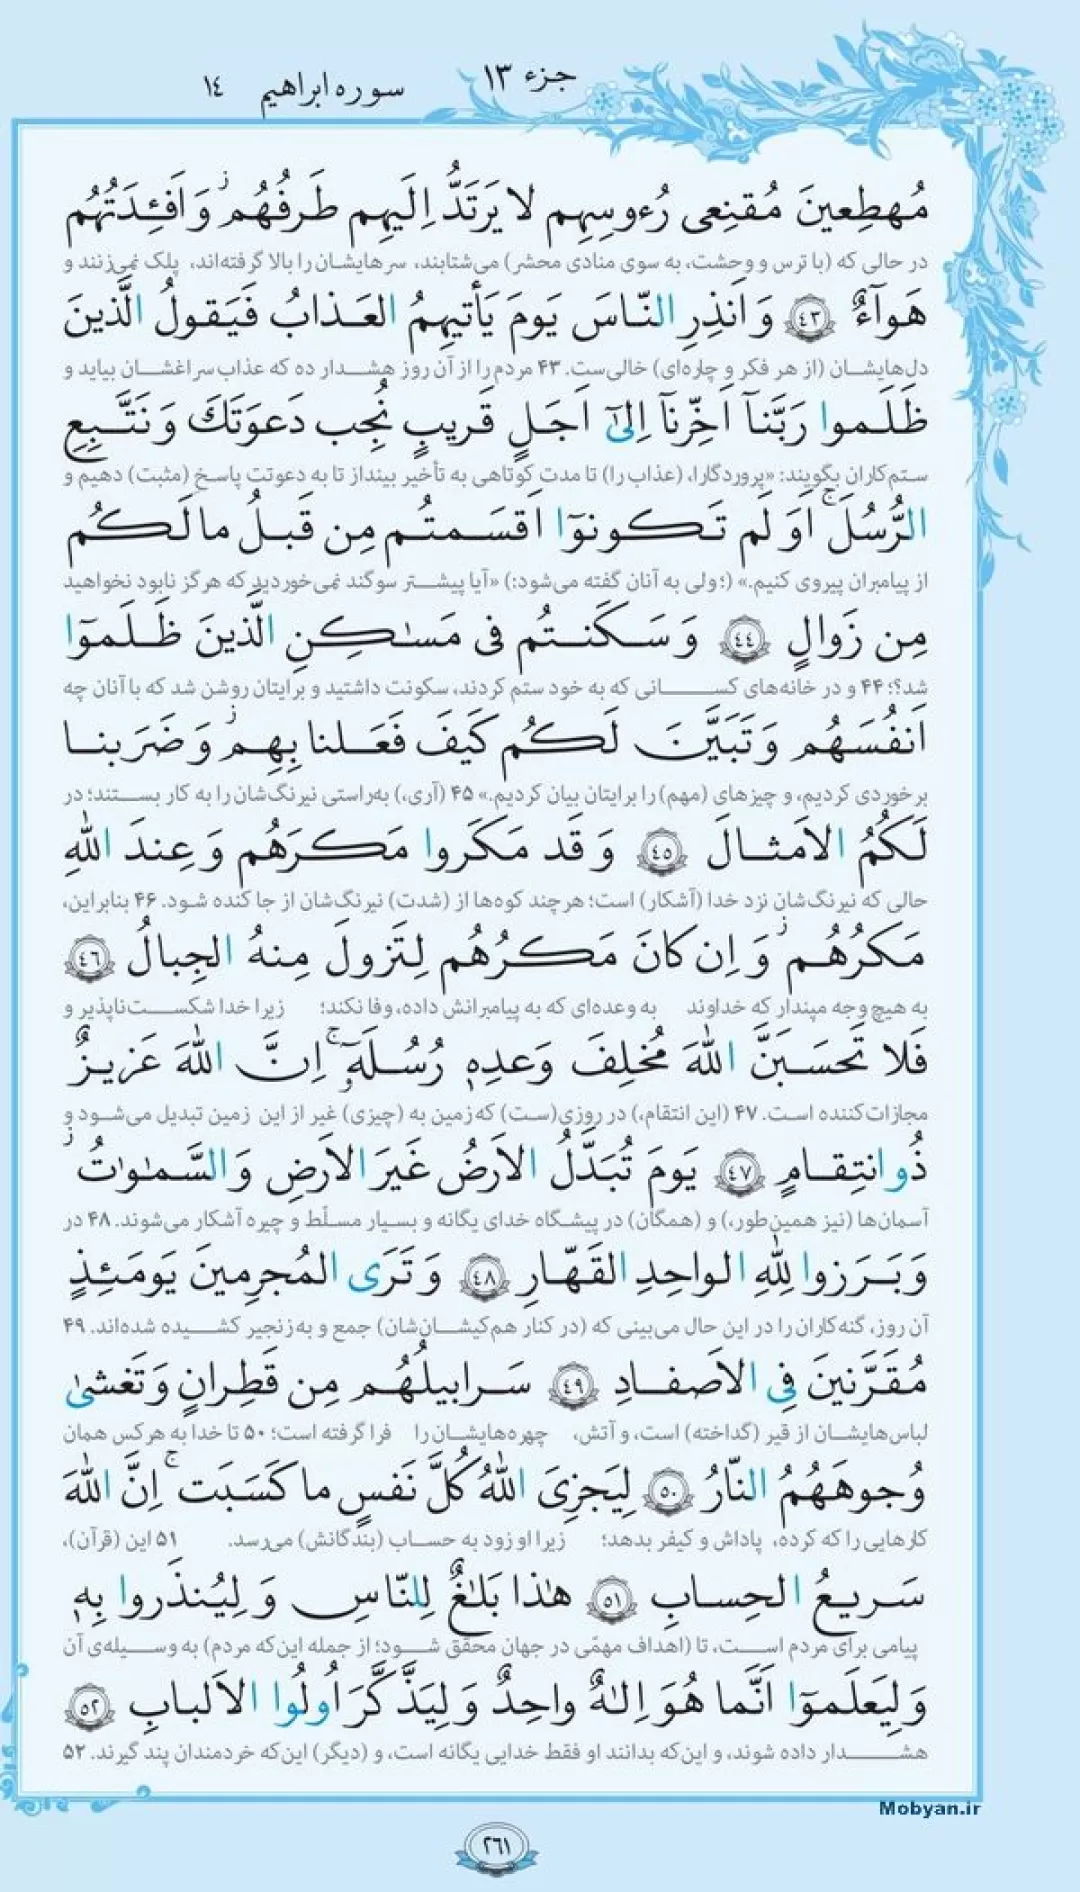 جزء ۱۳
سوره ابراهیم ۱٤
مُهطِعینَ مُقنِعی رُءوسِهِم لا یَرتَدُّ اِلَیهِم طَرفُهُم ۖز وَ اَفـِٔدَتُهُم
در حالی که (با ترس و وحشت، به سوی منادی محشر) می‌شتابند، سرهایشان را بالا گرفته‌اند، پلک نمی‌زنند و
هَوآءٌ ٤٣ وَ اَنذِرِ النّاسَ یَومَ یَأتیهِمُ العَذابُ فَیَقولُ الَّذینَ
دل‌هایشان (از هر فکر و چاره‌ای) خالی‌ست. ۴۳ مردم را از آن روز هشدار ده که عذاب سراغشان بیاید و
ظَلَموا رَبَّنآ اَخِّرنآ اِلیٰٓ اَجَلٍ قَریبٍ نُجِب دَعوَتَكَ وَ نَتَّبِعِ
ستم‌کاران بگویند: «پروردگارا، (عذاب را) تا مدت کوتاهی به تأخیر بینداز تا به دعوتت پاسخ (مثبت) دهیم و
الرُّسُلَ ۚ اَوَ لَم تَکونوٓا اَقسَمتُم مِن قَبلُ ما لَکُم
از پیامبران پیروی کنیم.» (؛ولی به آنان گفته می‌شود:) «آیا پیشتر سوگند نمی‌خوردید که هرگز نابود نخواهید
مِن زَوالٍ ٤٤ وَ سَکَنتُم فی مَسٰکِنِ الَّذینَ ظَلَموٓا
شد؟؛ ۴۴ و در خانه‌های کسانی که به خود ستم کردند، سکونت داشتید و برایتان روشن شد که با آنان چه
اَنفُسَهُم وَ تَبَیَّنَ لَکُم کَیفَ فَعَلنا بِهِم ز وَ ضَرَبنا
برخوردی کردیم، و چیزهای (مهم) را برایتان بیان کردیم.» ۴۵ (آری،) به‌راستی نیرنگ‌شان را به کار بستند؛ در
لَکُمُ الاَمثالَ ٤٥ وَ قَد مَکَروا مَکرَهُم وَ عِندَ اللّٰهِ
حالی که نیرنگ‌شان نزد خدا (آشکار) است؛ هرچند کوه‌ها از (شدت) نیرنگ‌شان از جا کنده شود. ۴۶ بنابراین،
مَکرُهُم ز وَ اِن کانَ مَکرُهُم لِتَزولَ مِنهُ الجِبالُ ٤٦
به هیچ وجه مپندار که خداوند به وعده‌ای که به پیامبرانش داده، وفا نکند؛ زیرا خدا شکست‌ناپذیر و
فَلا تَحسَبَنَّ اللّٰهَ مُخلِفَ وَعدِهٖ رُسُلَهٗٓ ۚ اِنَّ اللّٰهَ عَزیزٌ
مجازات‌کننده است. ۴۷ (این انتقام،) در روزی(ست) که زمین به (چیزی) غیر از این زمین تبدیل می‌شود و
ذُو انتِقامٍ ٤٧ یَومَ تُبَدَّلُ الاَرضُ غَیرَ الاَرضِ وَ السَّمٰوٰتُ ز
آسمان‌ها (نیز همین‌طور،) و (همگان) در پیشگاه خدای یگانه و بسیار مسلّط و چیره آشکار می‌شوند. ۴۸ در
وَ بَرَزوا لِلّٰهِ الواحِدِ القَهّارِ ٤٨ وَ تَرَی المُجرِمینَ یَومَئِذٍ
آن روز، گنه‌کاران را در این حال می‌بینی که (در کنار هم‌کیشان‌شان) جمع و به زنجیر کشیده شده‌اند. ۴۹
مُقَرَّنینَ فِی الاَصفادِ ٤٩ سَرابیلُهُم مِن قَطِرانٍ وَ تَغشیٰ
لباس‌هایشان از قیر (گداخته) است، و آتش، چهره‌هایشان را فرا گرفته است؛ ۵۰ تا خدا به هرکس همان
وُجوهَهُمُ النّارُ ٥٠ لِیَجزِیَ اللّٰهُ کُلَّ نَفسٍ ما کَسَبَت ۚ اِنَّ اللّٰهَ
کارهایی را که کرده، پاداش و کیفر بدهد؛ زیرا او زود به حساب (بندگانش) می‌رسد. ۵۱ این (قرآن)،
سَریعُ الحِسابِ ٥١ هٰذا بَلاغٌ لِلنّاسِ وَ لِیُنذَروا بِهٖ
پیامی برای مردم است، تا (اهداف مهمّی در جهان محقّق شود؛ از جمله این‌که مردم) به وسیله‌ی آن
وَ لِیَعلَموٓا اَنَّما هُوَ اِلٰهٌ واحِدٌ وَ لِیَذَّکَّرَ اُولُوا الاَلبابِ ٥٢
هشدار داده شوند، و این‌که بدانند او فقط خدایی یگانه است، و (دیگر) این‌که خردمندان پند گیرند. ۵۲
Mobyan.ir
۲۶۱